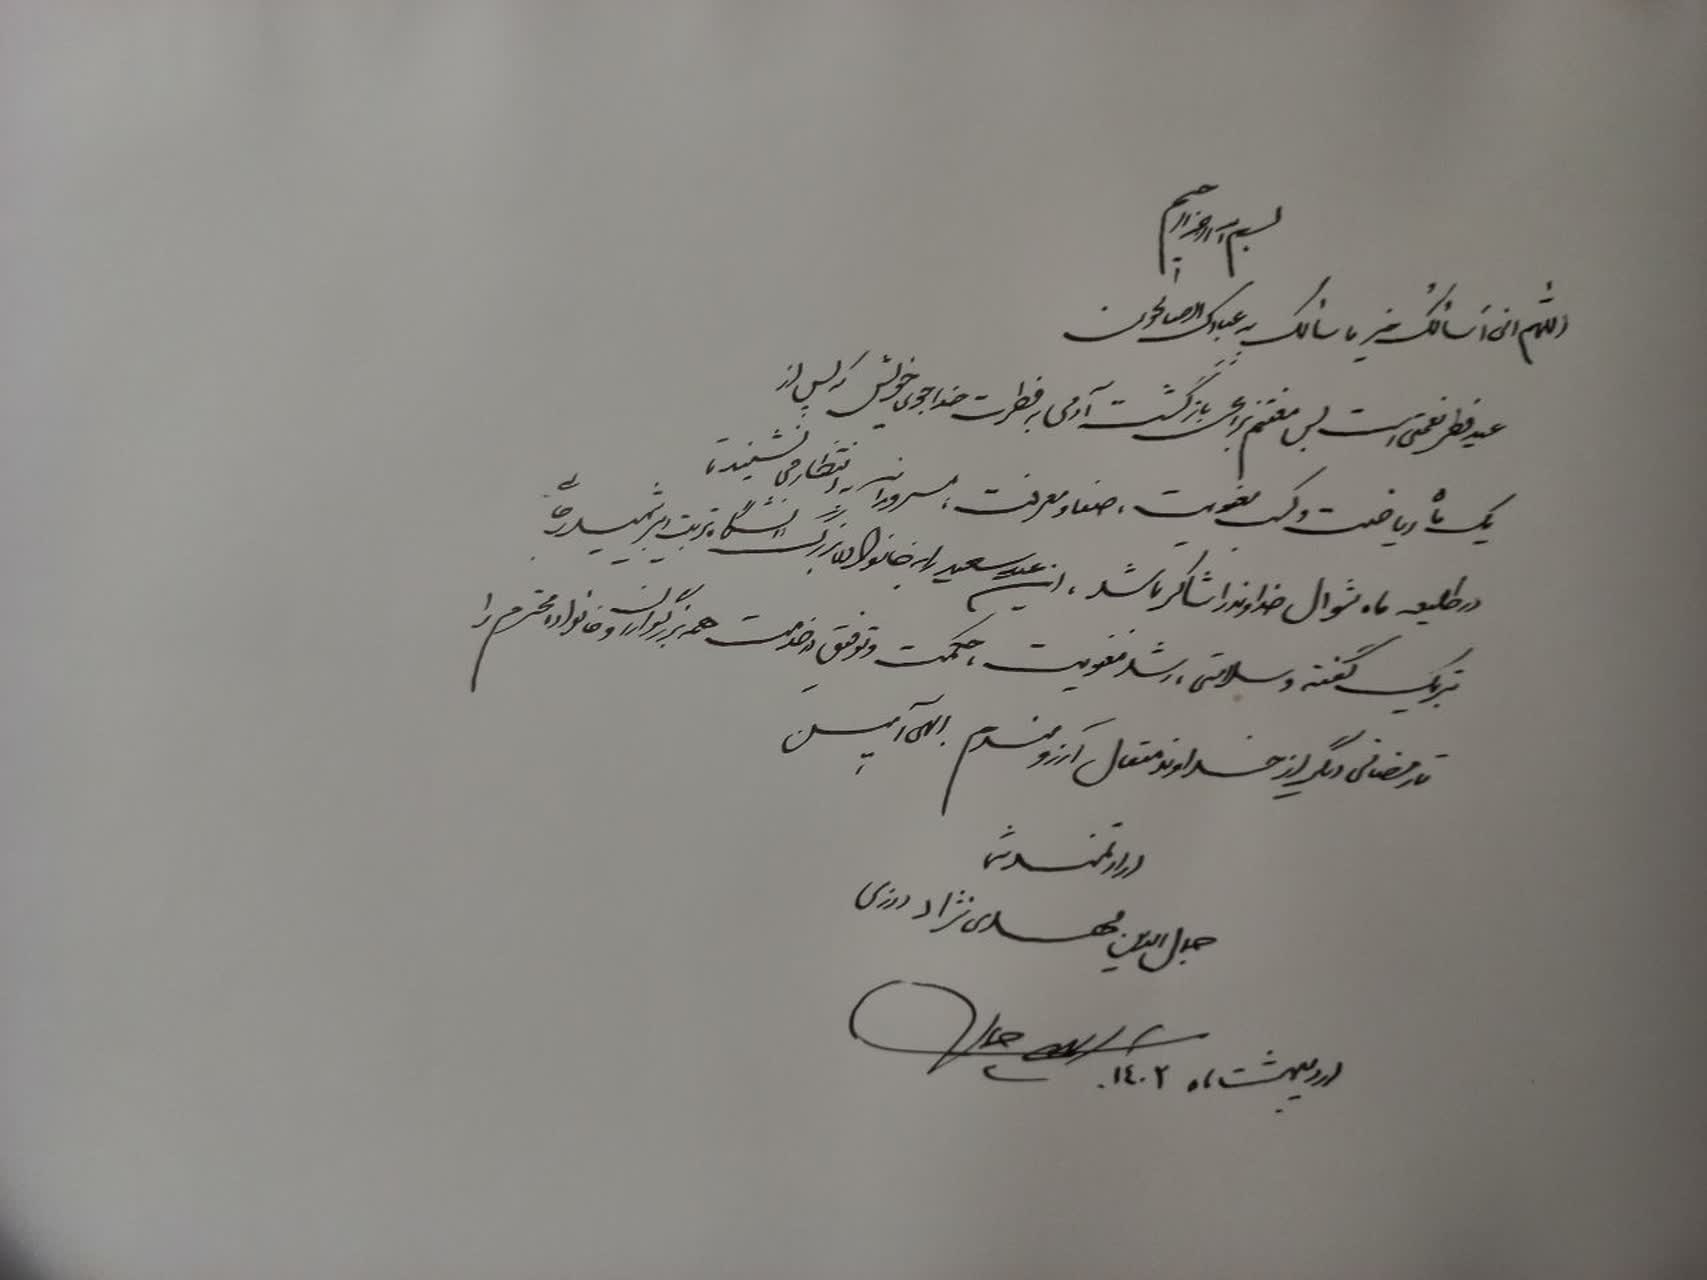 بسم الله الرحمن الرحیم
اللهم انی أسألک خیر ما سألک به عبادک الصالحون
عید فطر نعمتی است بس مغتنم برای بازگشت آدمی به فطرت خداجوی خویش که پس از
یک ماه ریاضت و کسب معنویت، صفا و معرفت، مسرورانه به انتظار می نشیند تا
در طلیعه ماه شوال خداوند را شاکر باشد، این عید سعید را به خانواده بزرگ دانشگاه تربیت دبیر شهید رجایی
تبریک گفته و سلامتی، رشد معنویت، حکمت و توفیق در خدمت همه بزرگواران و خانواده محترم را
تا رمضانی دیگر از خداوند متعال آرزومندم. الهی آمین
ارادتمند شما
جمال الدین مهدی نژاد درزی
اردیبهشت ماه ۱۴۰۲.